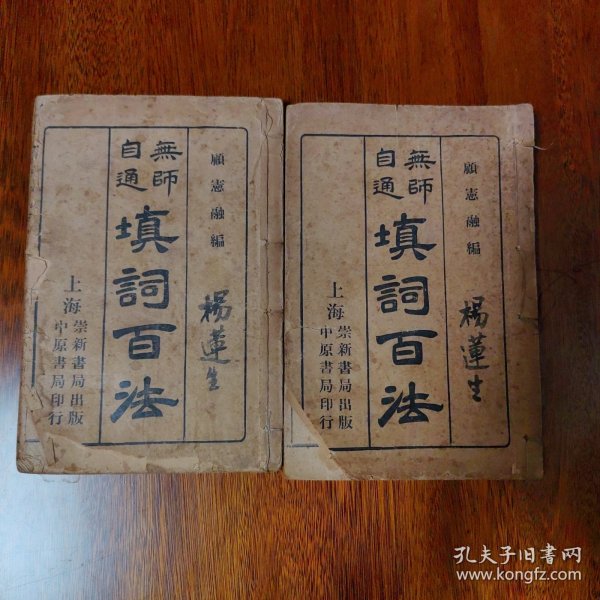 顧憲融編
無師
自通
填詞百法
楊蓮生
上海
崇新書局出版
中原書局印行
顧憲融編
無師
自通
填詞百法
楊蓮生
上海
崇新書局出版
中原書局印行
孔夫子旧書网
www.kongfz.com